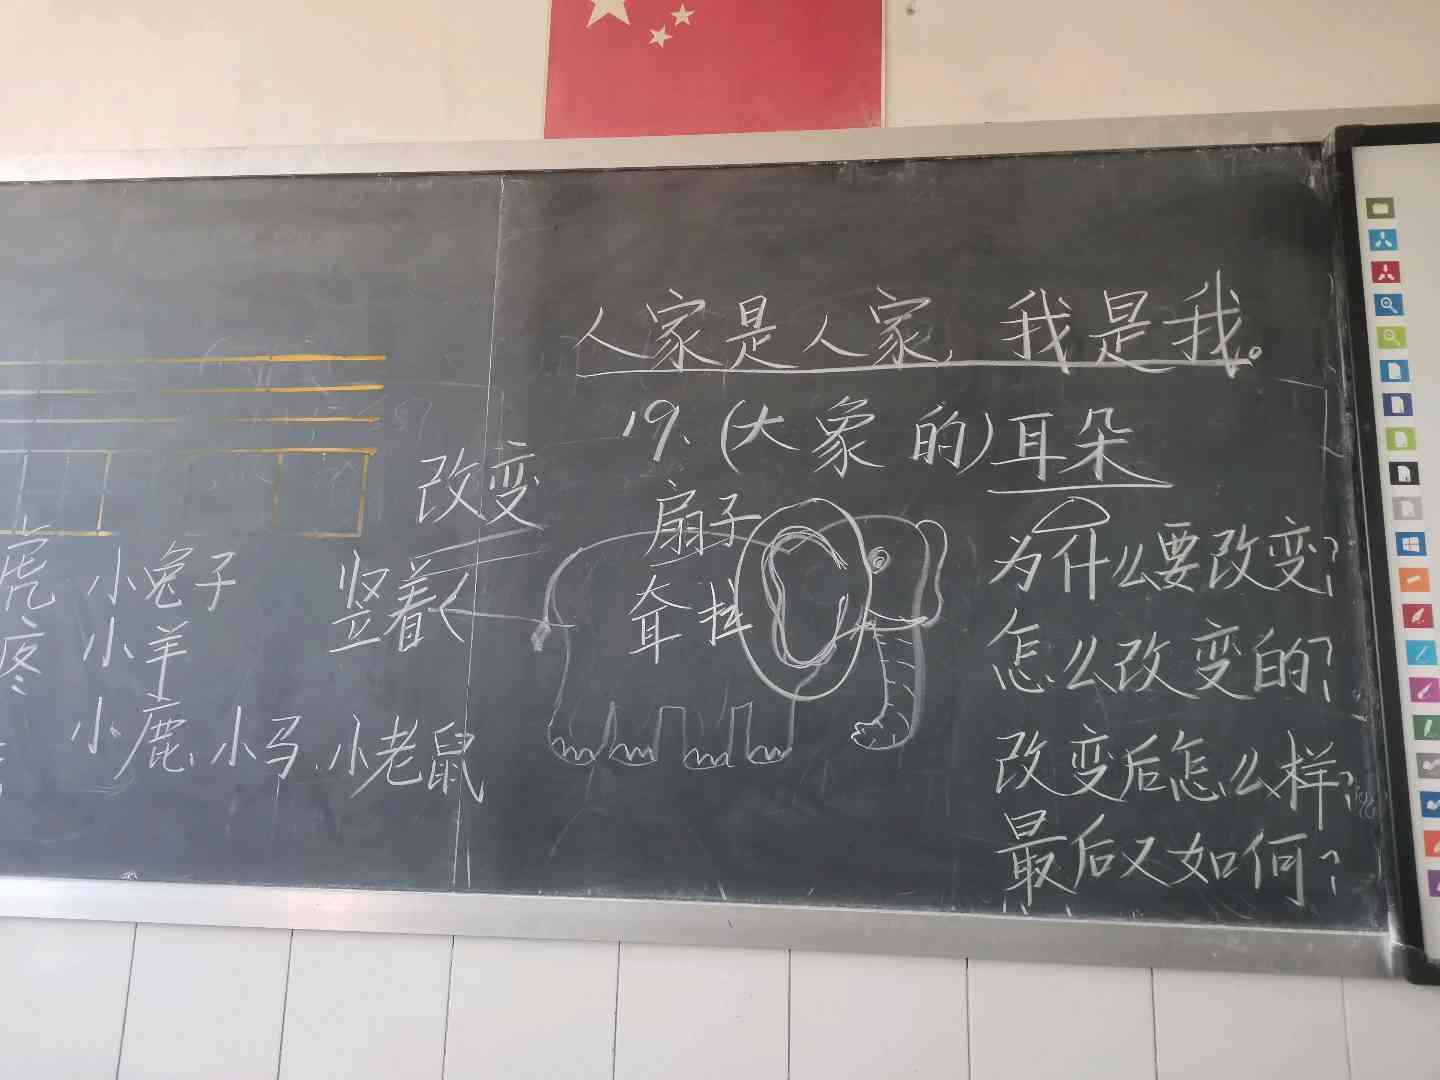 人家是人家,我是我。
19、(大象的)耳朵
改变
扇子
耷拉
竖着
虎
疼
小兔子
小羊
小鹿、小马、小老鼠
为什么要改变?
怎么改变的?
改变后怎么样?
最后又如何?